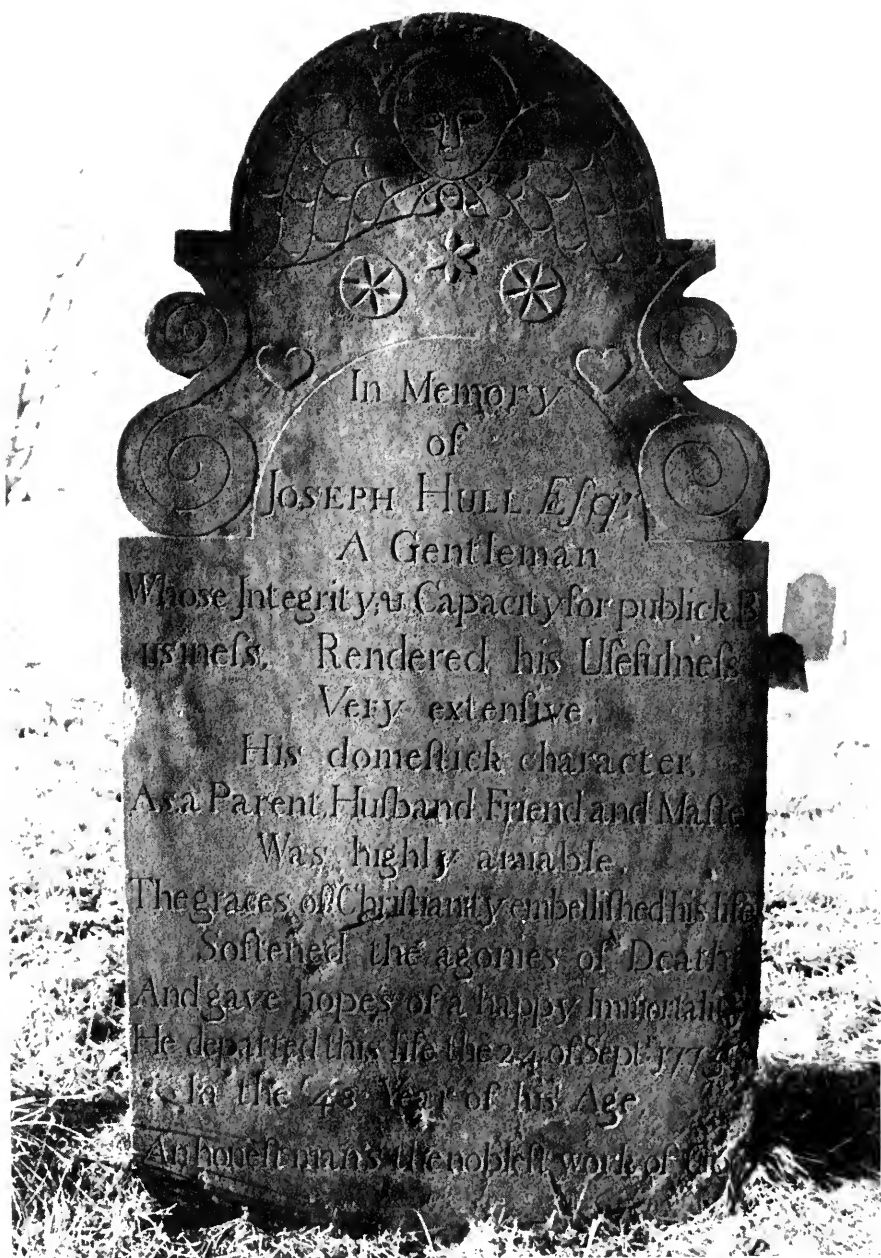 In Memory
of
JOSEPH HULL Eſqr
A Gentleman
Whose Integrity, & Capacity for publick B
usineſs, Rendered his Uſefulneſs
Very extenſive.
His domeſtick character,
As a Parent, Huſband, Friend and Maſte
Was highly amiable.
The graces of Chriſtianity embelliſhed his life
Softened the agonies of Death
And gave hopes of a happy
He departed this life the 24 of Sept
In the 48 Year of his Age
An honeſt man's the nobleſt work of